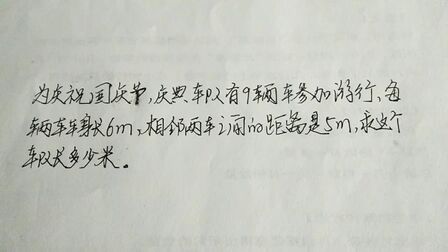 为庆祝国庆节,庆典车队有9辆车参加游行,每
辆车车身长6m,相邻两车之间的距离是5m,求这个
车队长多少米。